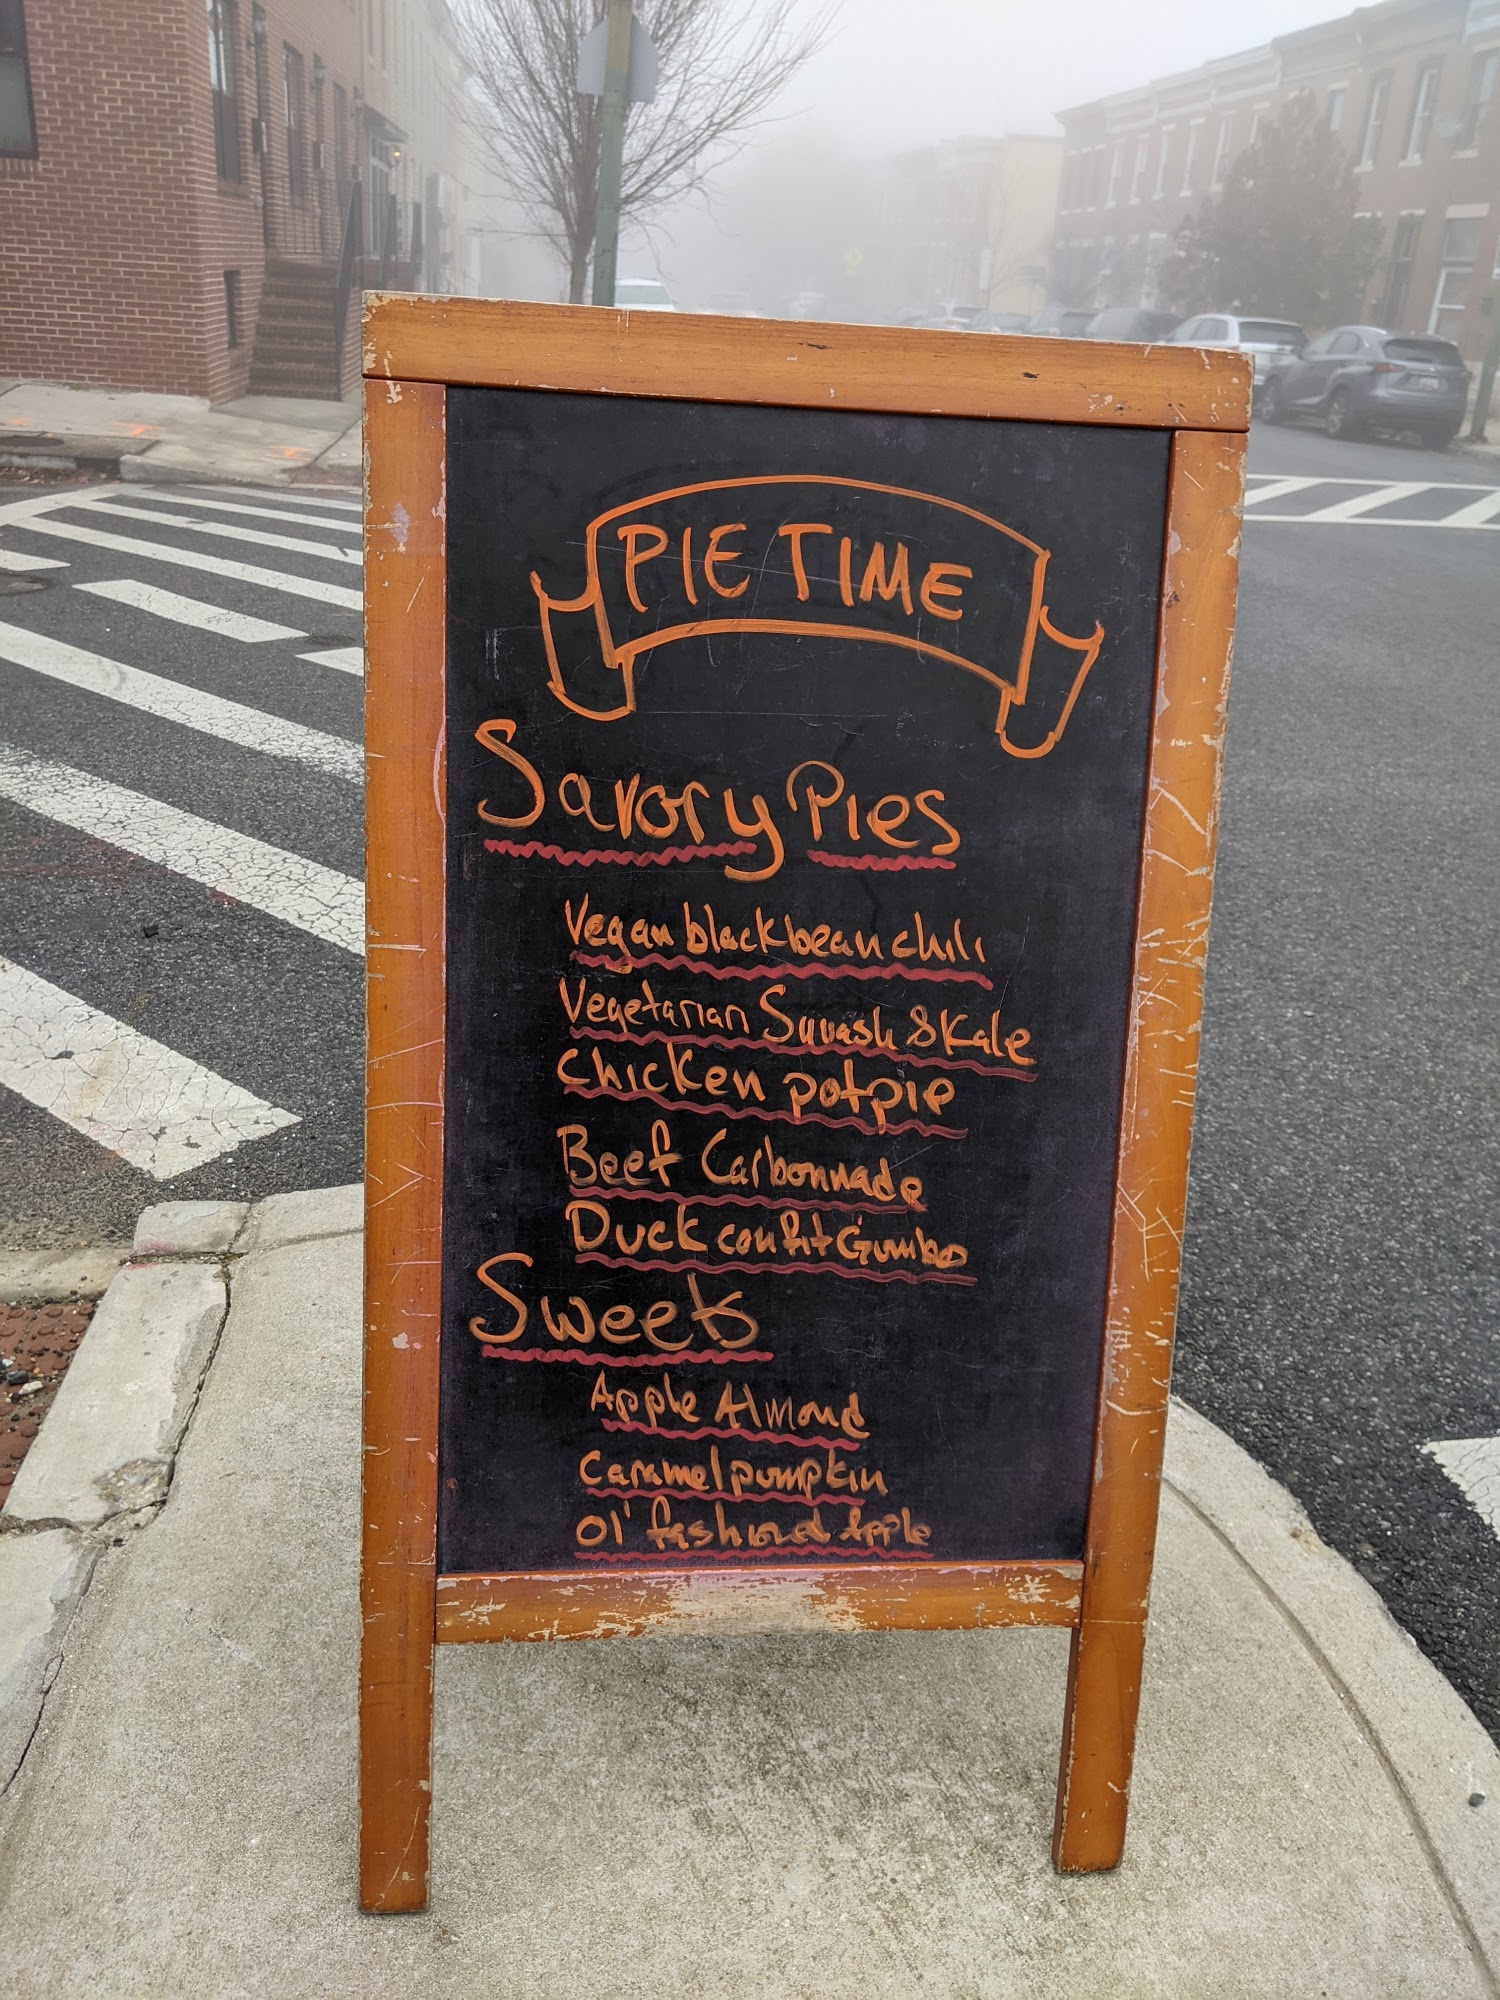 PIE TIME
Savory Pies
Vegan black bean chili
Vegetarian Squash & Kale
Chicken potpie
Beef Carbonnade
Duck confit Gumbo
Sweets
Apple Almond
Caramel pumpkin
Ol' fashioned Apple